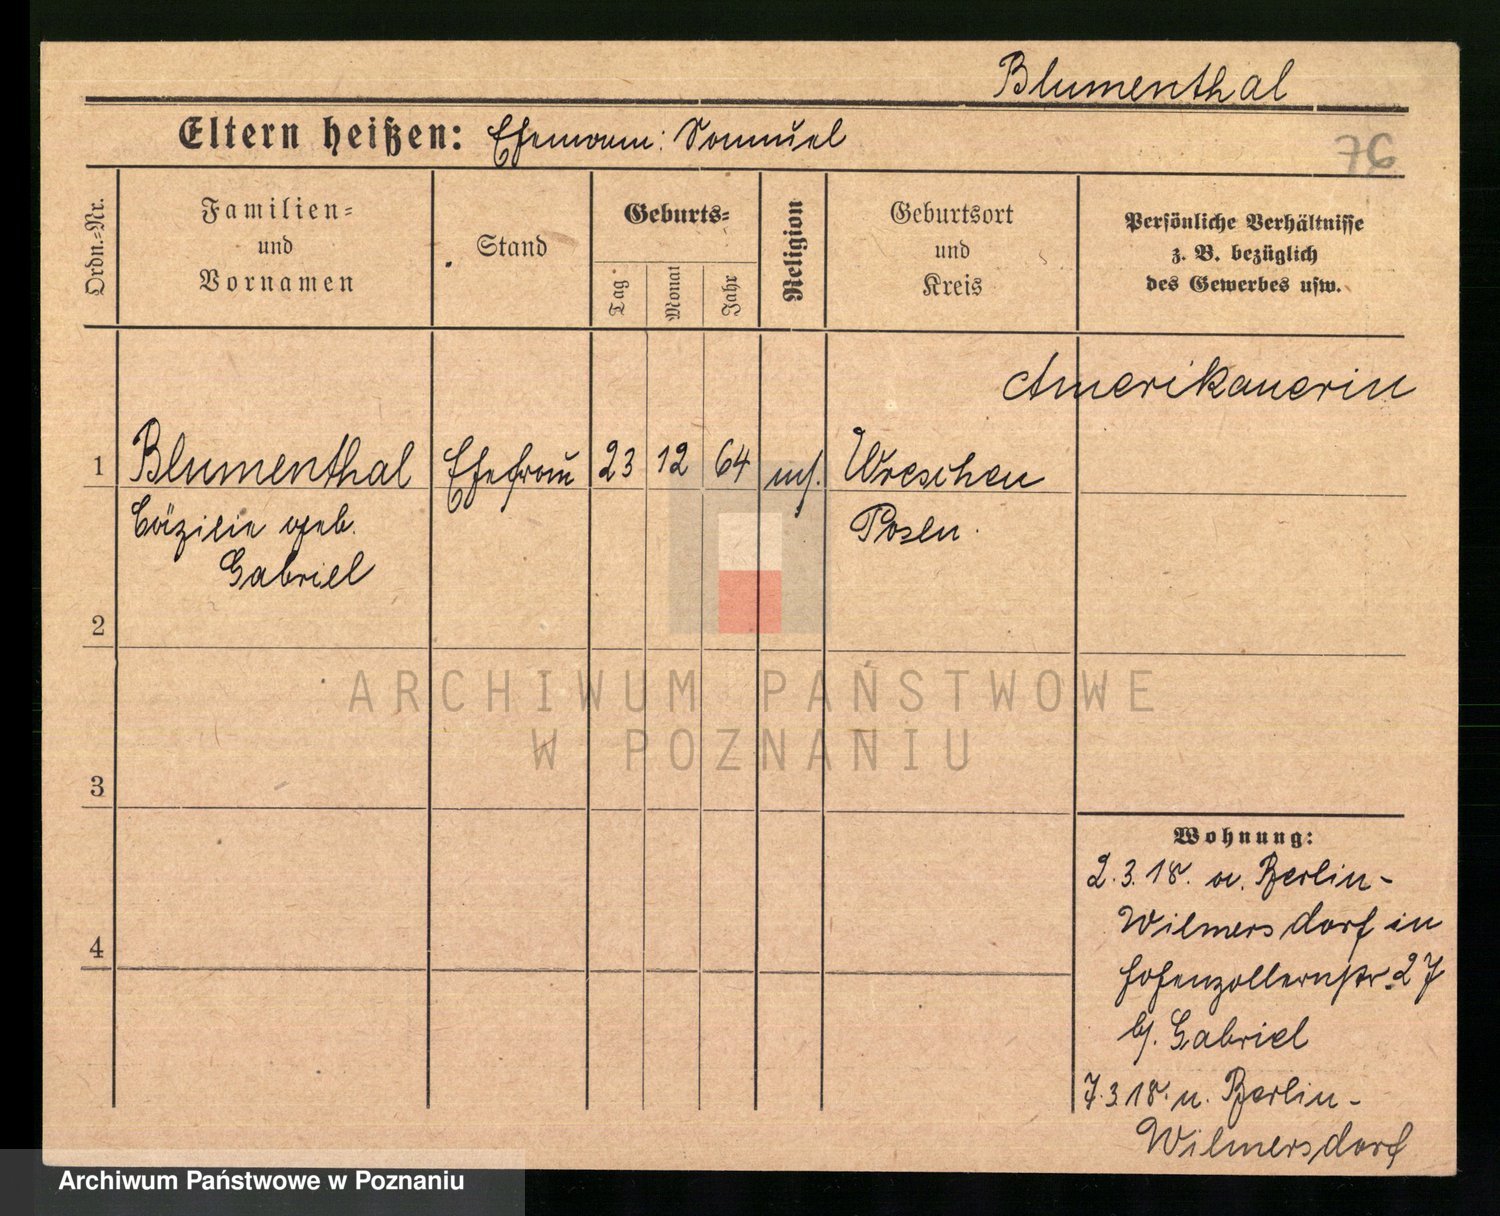 Blumenthal
Eltern heißen: Ehemann: Samuel
76
Ordn.-Nr.
Familien-
und
Vornamen
Stand
Geburts-
Tag
Monat
Jahr
Religion
Geburtsort
und
Kreis
Persönliche Verhältnisse
z. B. bezüglich
des Gewerbes usw.
Amerikanerin
1 Blumenthal Ehefrau 23 12 64 mos. Wreschen
Cäzilie geb. Posen.
Gabriel
2
3
4
Wohnung:
2.3.18. v. Berlin-
Wilmersdorf in
Hohenzollernstr. 27
b. Gabriel
7.3.18. n. Berlin-
Wilmersdorf
ARCHIWUM PAŃSTWOWE
W POZNANIU
Archiwum Państwowe w Poznaniu